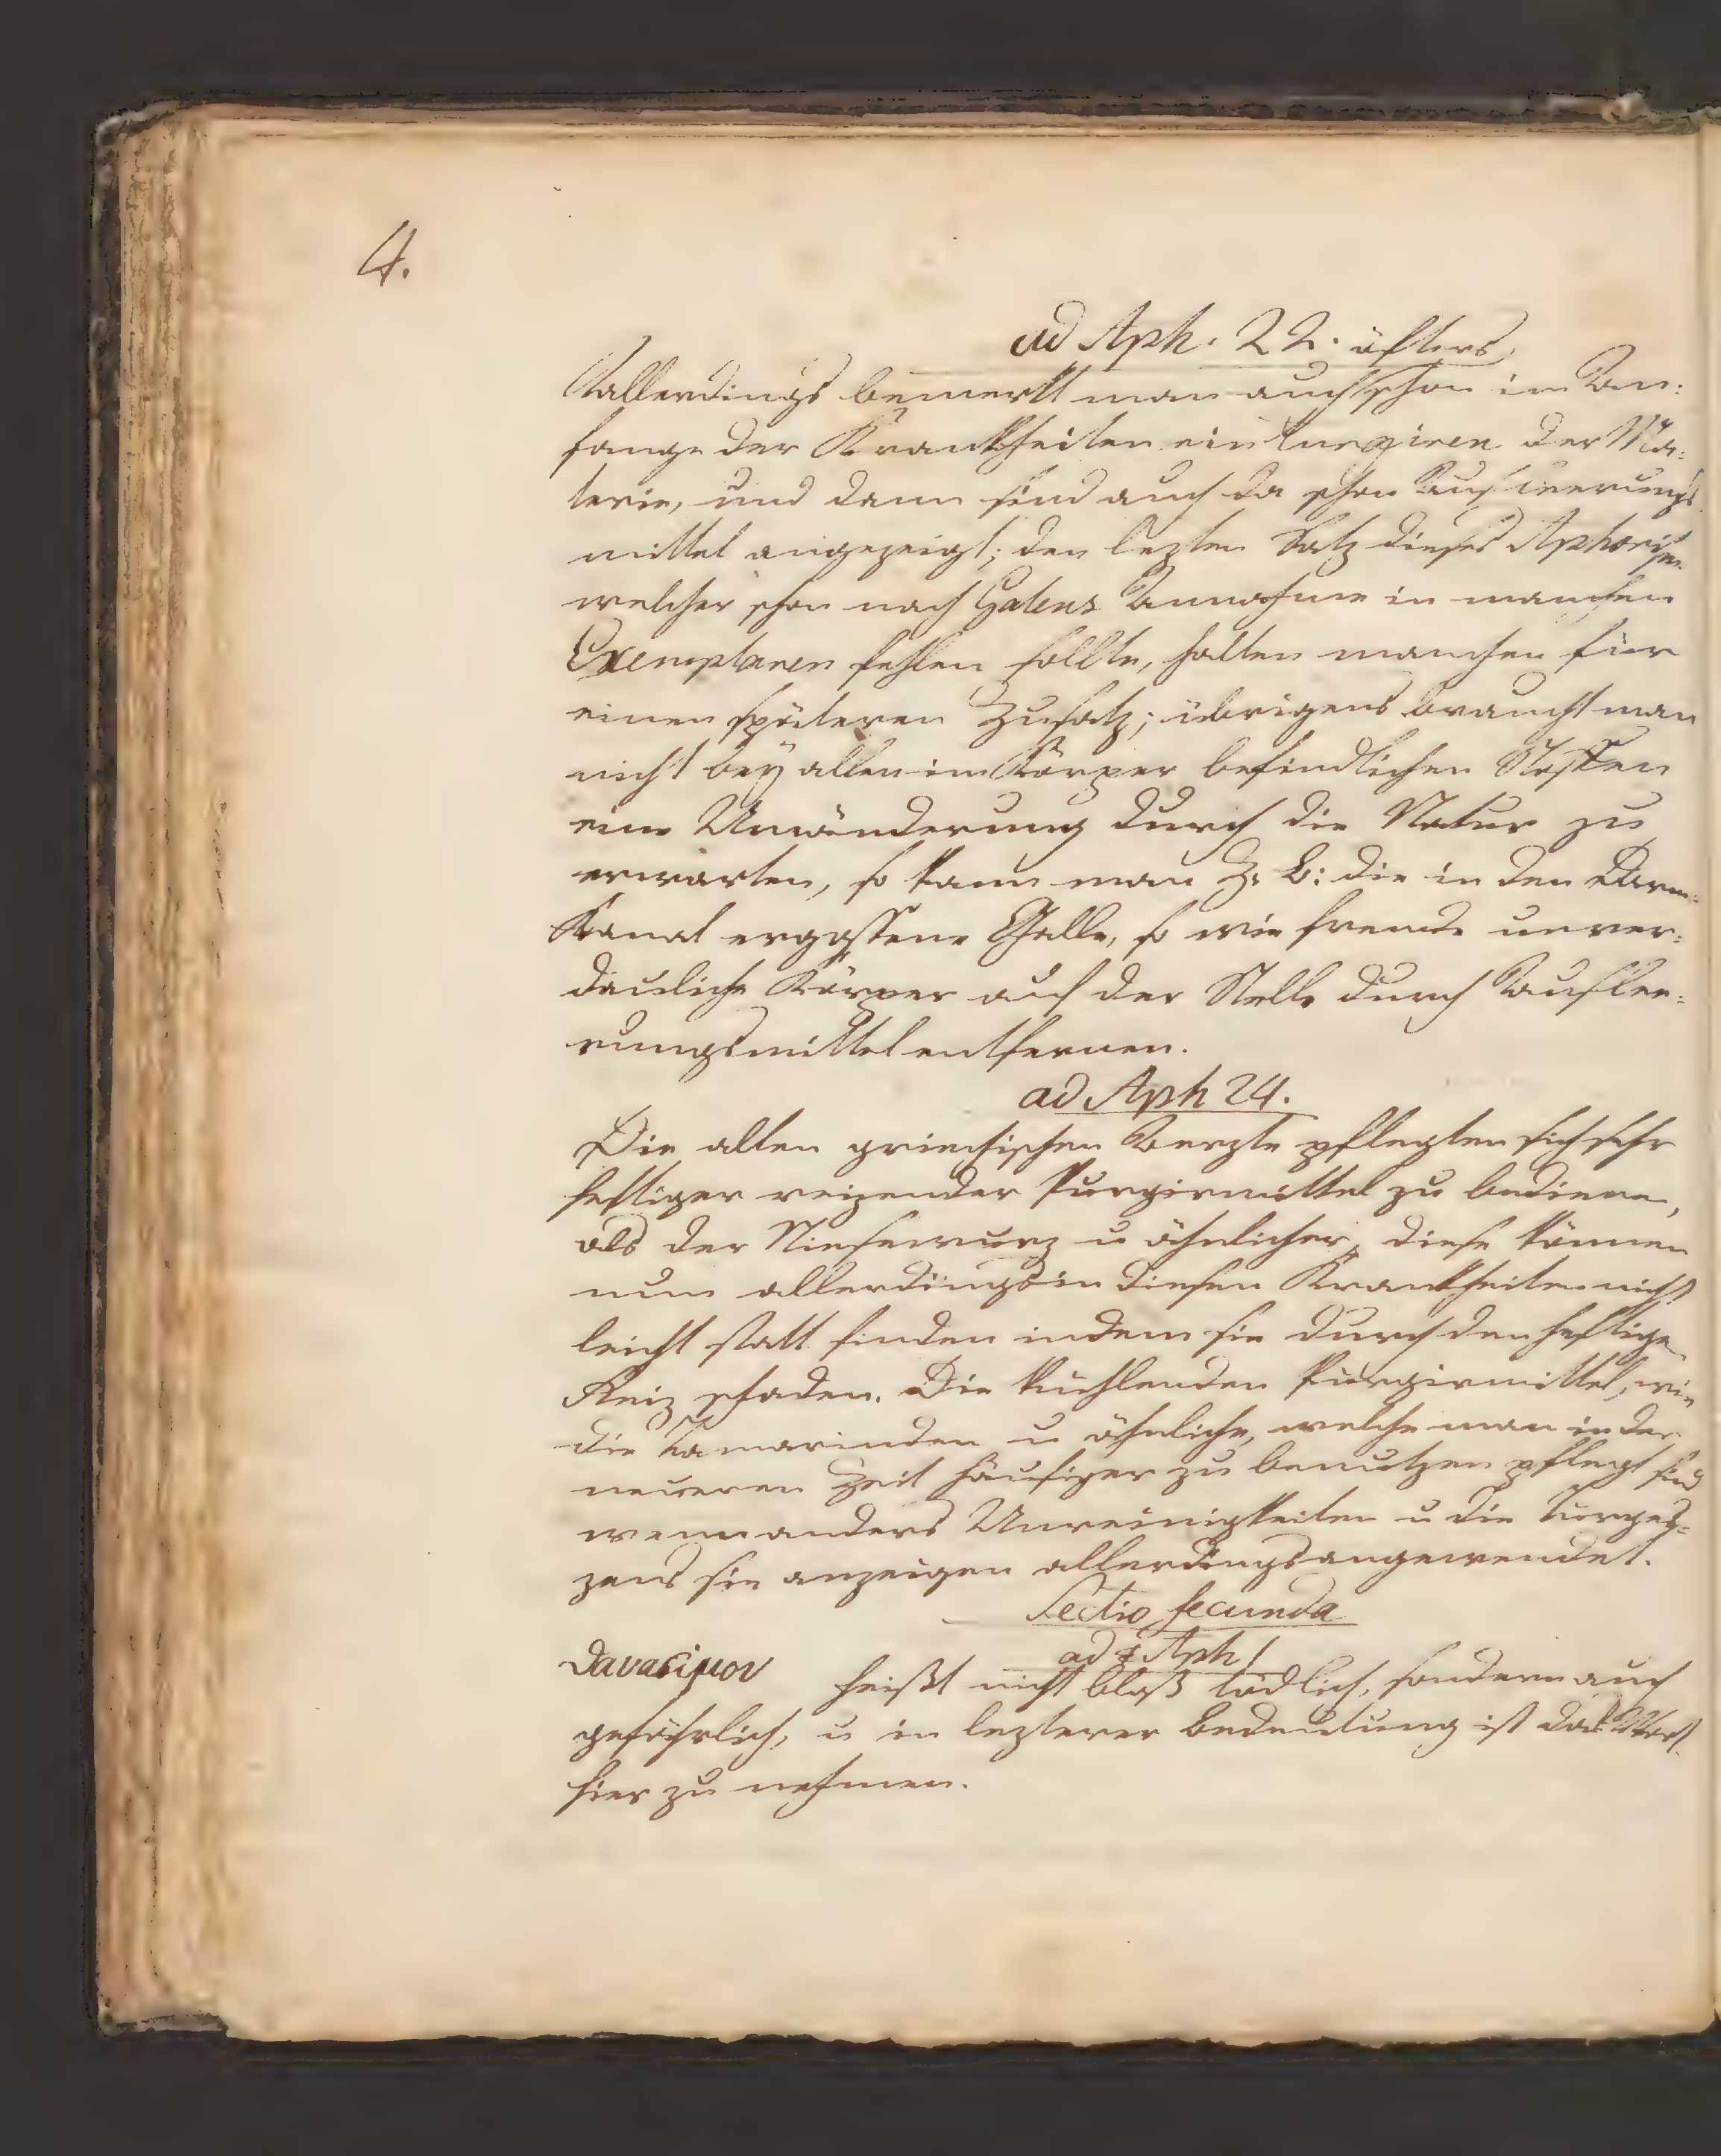 4.
ad Aph. 22. öfters,
allerdings bemerkt man auch schon im An:
fange der Krankheiten ein turgiren der Ma:
terie, und dann sind auch da schon Ausleerungs
mittel angezeigt; den lezten Satz dieses Aphorism
welcher schon nach Galens Annahme in manchen
Exemplaren fehlen sollte, halten manchen für
einen späteren Zusatz; übrigens braucht man
nicht bey allen im Körper befindlichen Stoffen
eine Umänderung durch die Natur zu
erwarten, so kann man z. B: die in den Darm:
Kanal ergossene Galle, so wie fremde unver:
dauliche Körper auf der Stelle durch Auslee:
rungsmittel entfernen.
ad Aph 24.
Die alten griechischen Aerzte pflegten sich sehr
heftiger reizender Purgirmittel zu bedienen,
als der Niesewurz u ähnlicher, diese können
nun allerdings in diesen Krankheiten nicht
leicht statt finden indem sie durch den heftigen
Reiz schaden. Die kuehlenden Purgirmittel, wie
die Tamarinden u ähnliche, welche man in der
neueren Zeit häufiger zu benutzen pflegt sind
wenn anders Unreinigkeiten u die Turges:
zens sie anzeigen allerdings angewendet.
Sectio secunda
ad Aph 1
θανασιμον heißt nicht bloß tödlich, sondern auch
gefährlich, u in lezterer Bedeutung ist das Wort
hier zu nehmen.